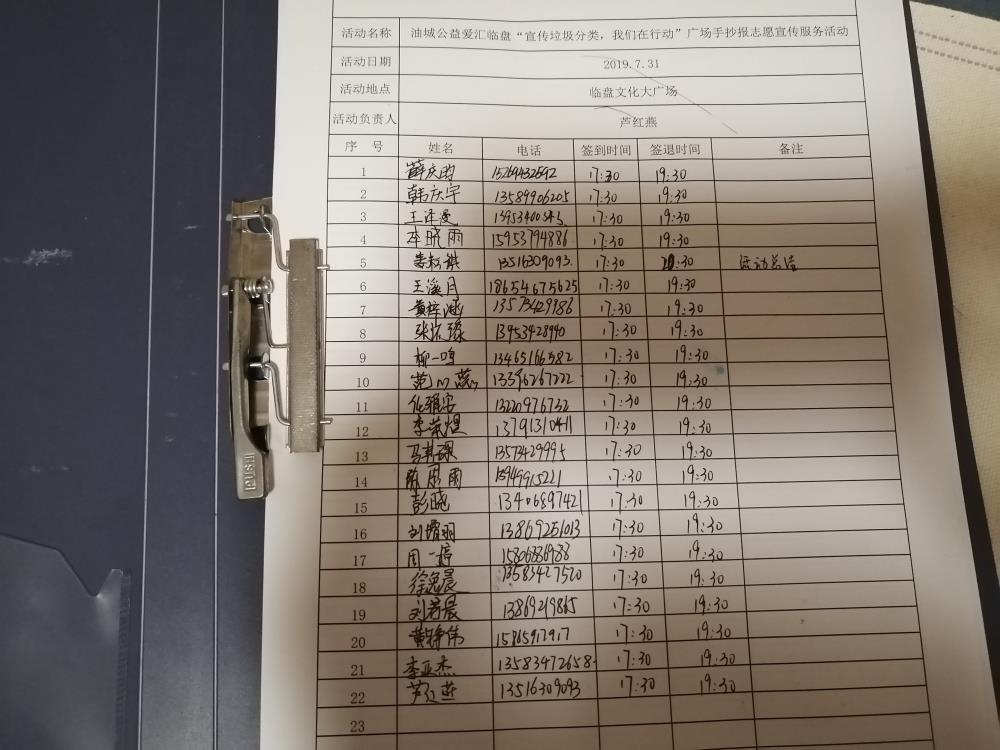 活动名称 油城公益爱汇临盘“宣传垃圾分类，我们在行动”广场手抄报志愿宣传服务活动
活动日期 2019.7.31
活动地点 临盘文化大广场
活动负责人 芦红燕
序 号 姓名 电话 签到时间 签退时间 备注
1 薛庆昀 15269432592 17:30 19:30
2 韩庆宇 13589906205 17:30 19:30
3 王泽曼 17:30 19:30
4 李晓雨 15953794886 17:30 19:30
5 13516309093 17:30 活动总结
6 王溪月 18654675625 17:30 19:30
7 黄梓涵 13573429386 17:30 19:30
8 13953428990 17:30 19:30
9 柳一鸣 13465166582 17:30 19:30
10 13396267222 17:30 19:30
11 13220976732 17:30 19:30
12 李荣煜 13791310411 17:30 19:30
13 13573429995 17:30 19:30
14 陈雨雨 15949915221 17:30 19:30
15 彭晓 13406897421 17:30 19:30
16 13869251013 17:30 19:30
17 周一婷 15806886988 17:30 19:30
18 徐逸晨 13583427520 17:30 19:30
19 刘若晨 13869219865 17:30 19:30
20 17:30 19:30
21 李亚杰 13583472658 17:30 19:30
22 芦红燕 13516309093 17:30 19:30
23